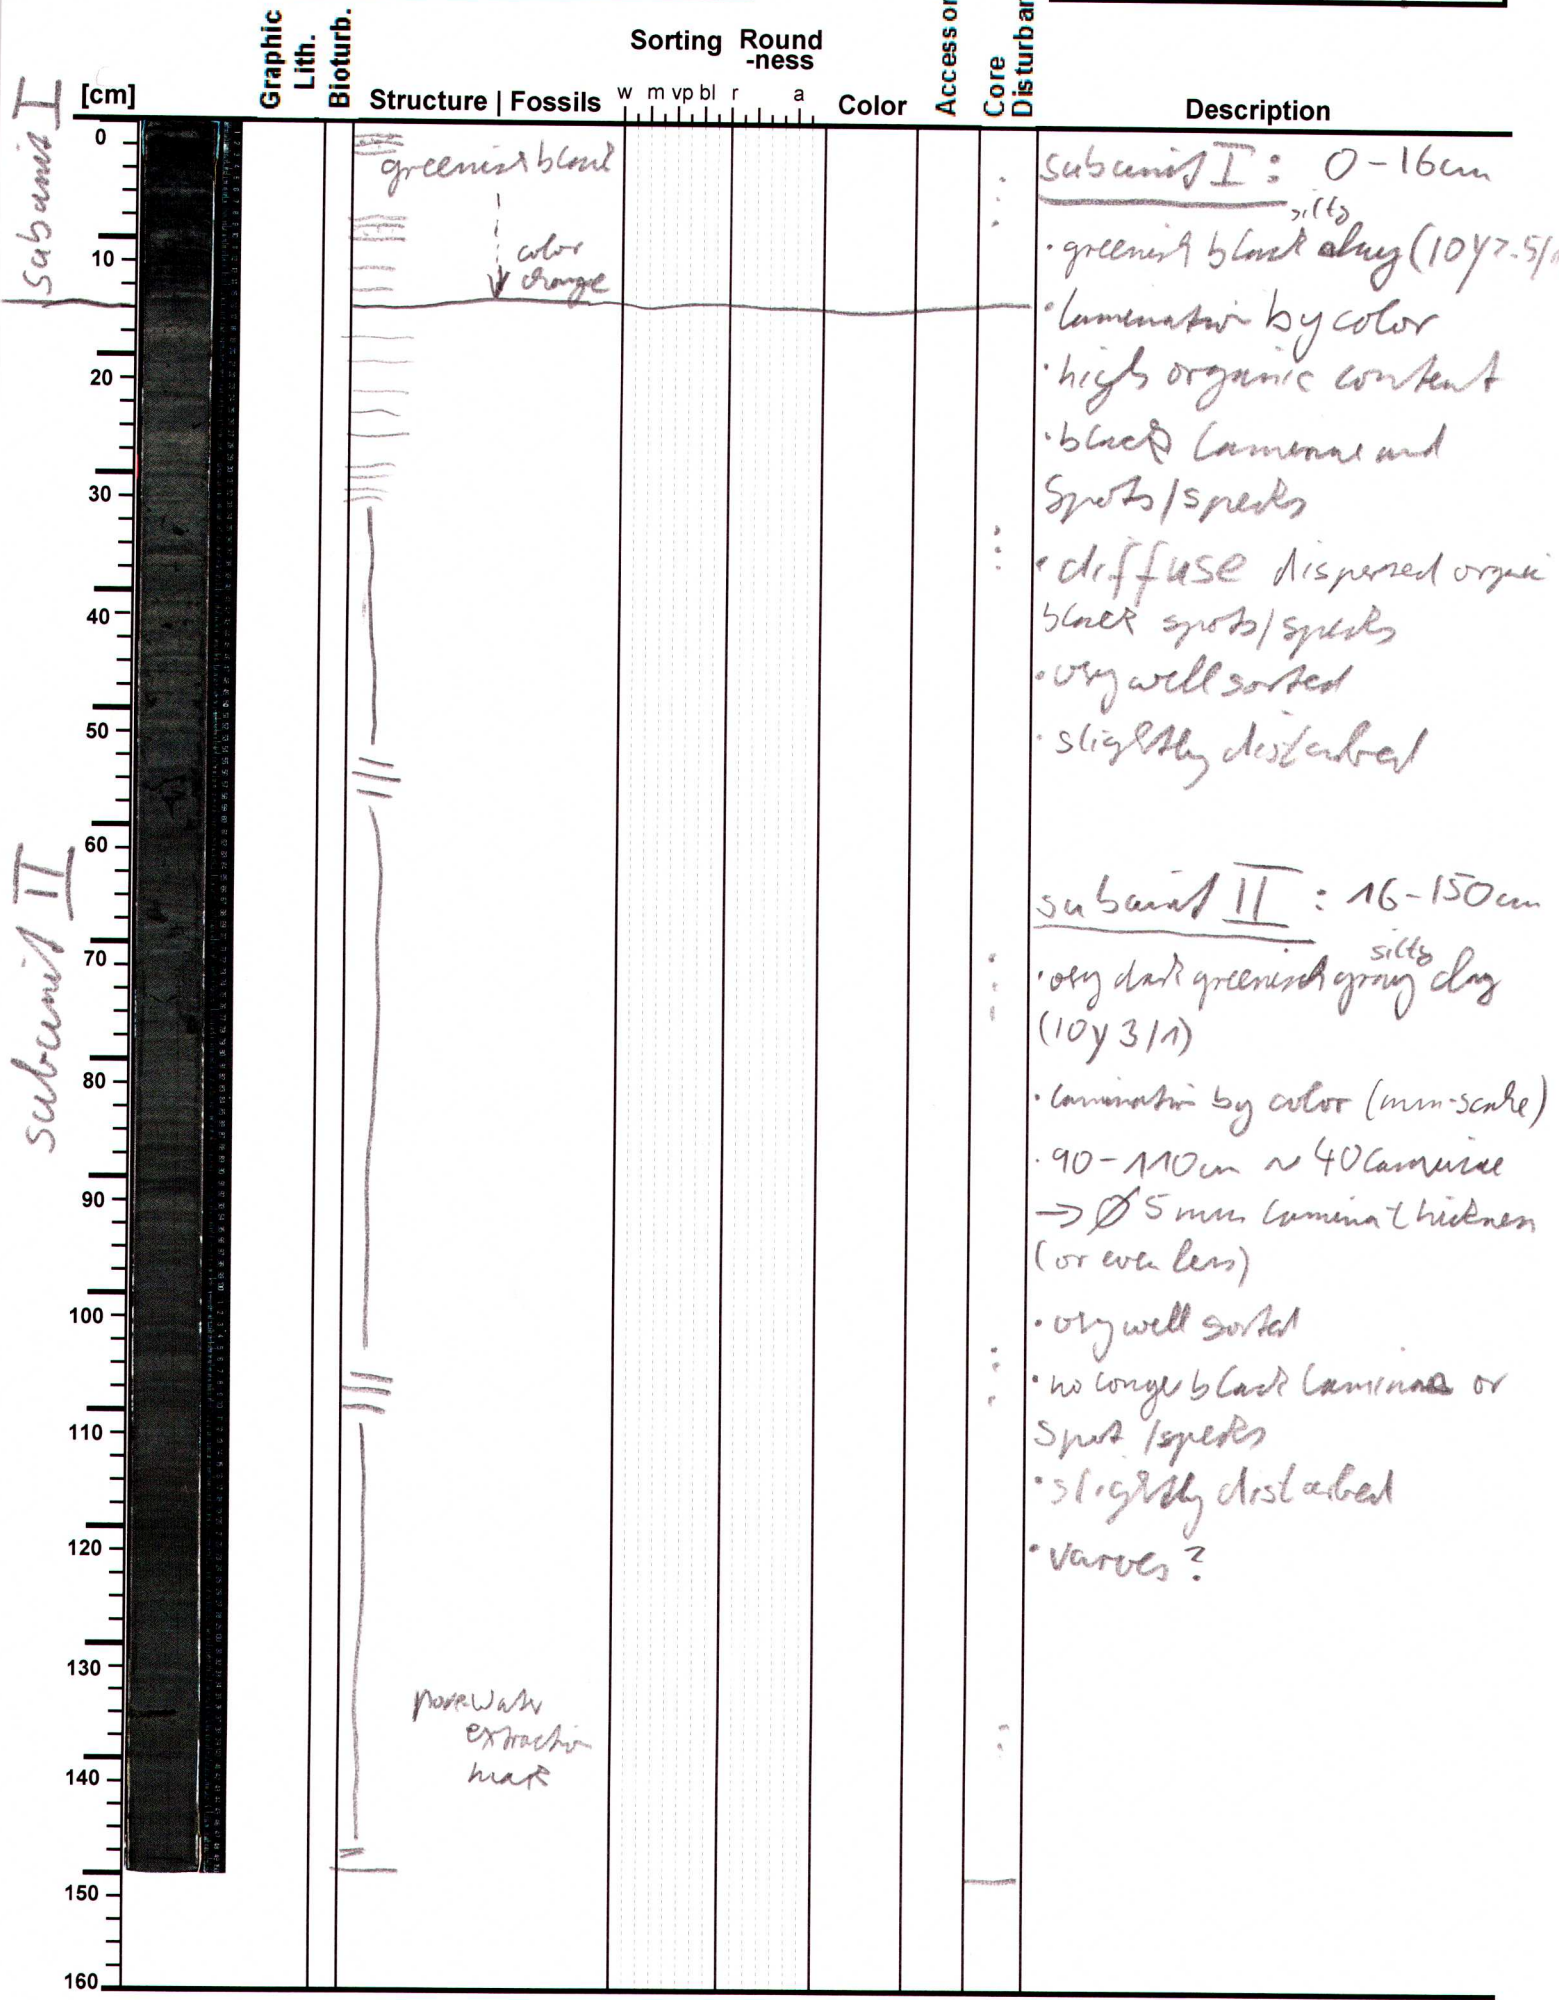 Graphic
Lith.
Bioturb.
Structure | Fossils
Sorting
Round
-ness
w m vp bl r a
Color
Core
Disturbar
Description
[cm]
0
10
20
30
40
50
60
70
80
90
100
110
120
130
140
150
160
subunit I
subunit II
greenish black
color
change
porewater
extraction
mark
subunit I: 0-16cm
silty
• greenish black clay (10Y2.5/
• lamination by color
• high organic content
• black laminae and
spots/specks
• diffuse dispersed organic
black spots/specks
• very well sorted
• slightly disturbed
subunit II: 16-150cm
silty
• very dark greenish gray clay
(10y 3/1)
• lamination by color (mm-scale)
• 90-110cm ~ 40 laminae
→ Ø 5mm lamina thickness
(or even less)
• very well sorted
• no longer black laminae or
spot /specks
• slightly disturbed
• varves?